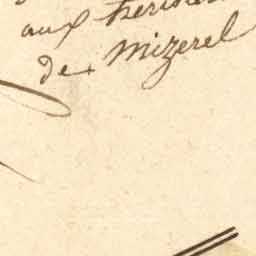 aux
de Mizerel